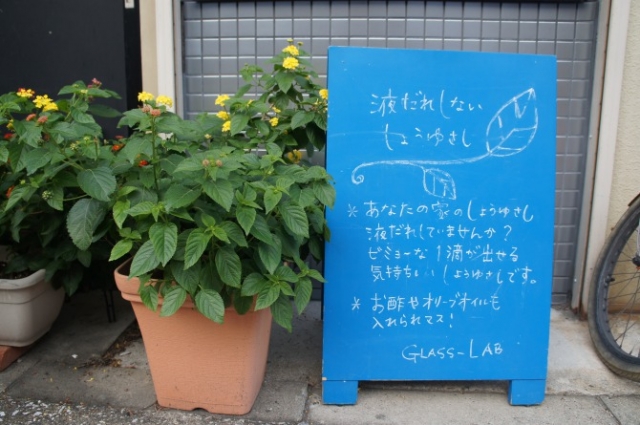 液だれしない
しょうゆさし
※あなたの家のしょうゆさし
液だれしていませんか?
ビミョーな1滴が出せる
気持ちいいしょうゆさしです。
※お酢やオリーブオイルも
入れられマス!
GLASS-LAB